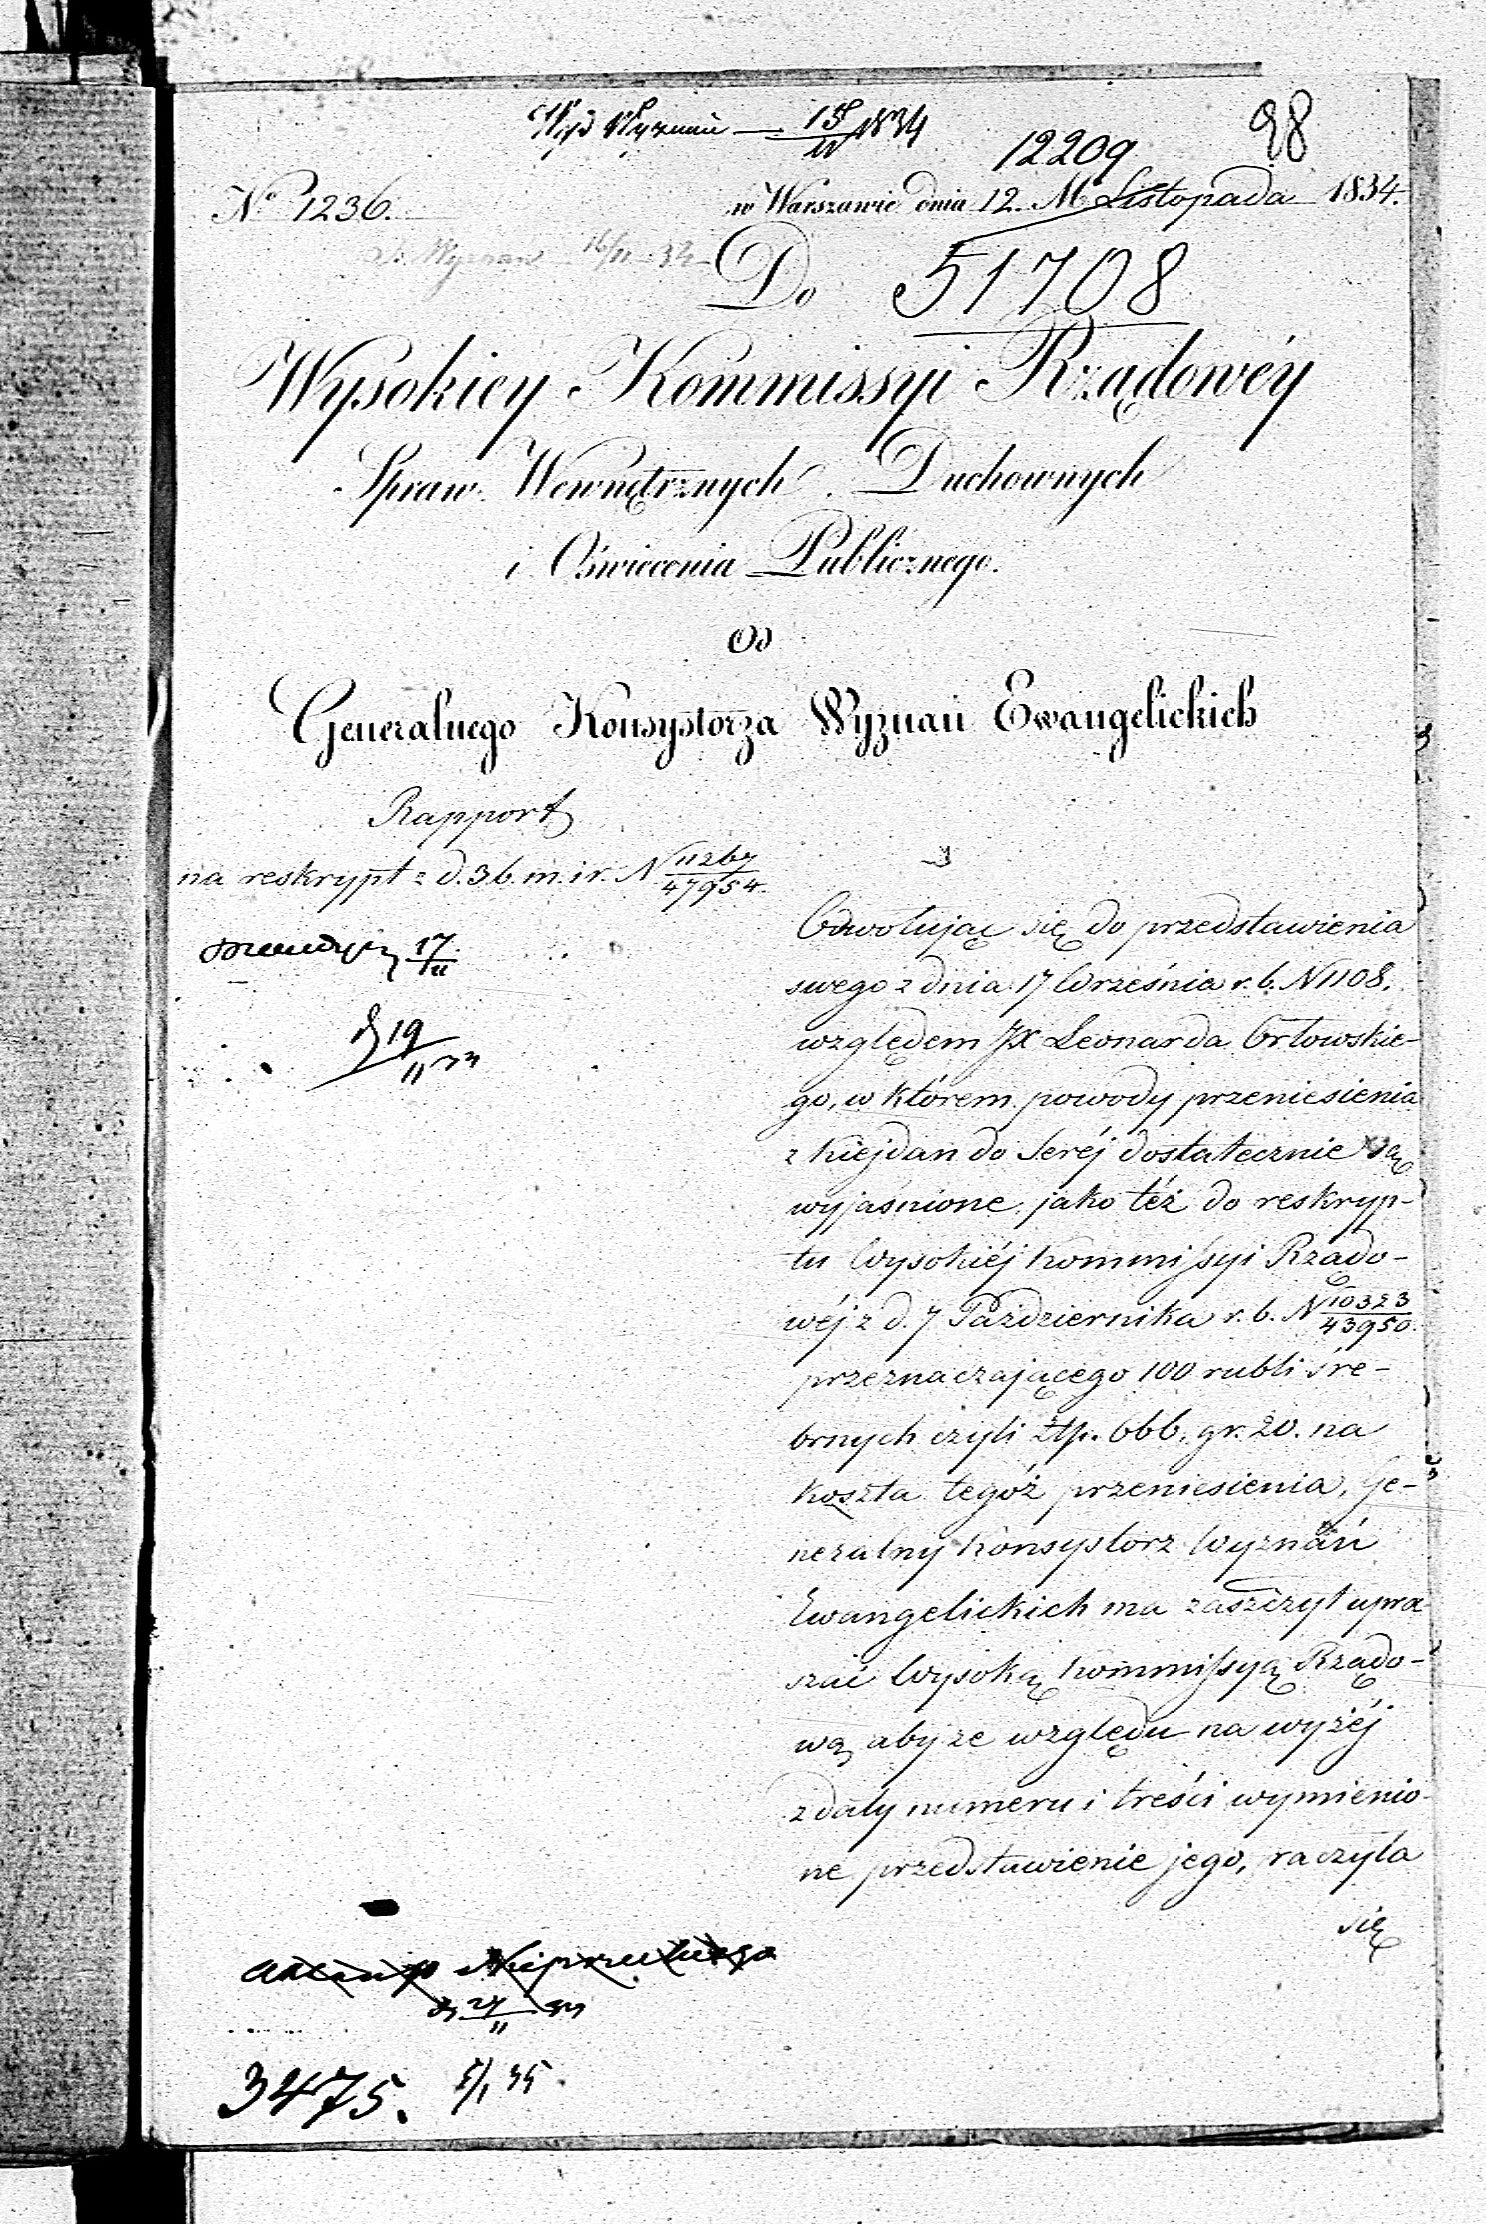 15/11 1834
12209
98
No 1236.
w Warszawie dnia 12. M. Listopada 1834.
16/11 34
Do 51708
Wysokiey Kommissyi Rządowéy
Spraw Wewnętrznych Duchownych
i Oświecenia Publicznego.
Od
Generalnego Konsystorza Wyznań Ewangelickich
Rapport
na reskrypt z d. 3 b. m. i r. N 11267/47954.
17/11
19/11 34
Odwołując się do przedstawienia
swego z dnia 17 Września r. b. N 1108.
względem JX Leonarda Orłowskie-
go, w którem powody przeniesienia
z Kiejdan do Seréj dostatecznie są
wyjaśnione, jako téż do reskryp-
tu Wysokiéj Kommissyi Rządo-
wéj z d. 7 Października r. b. N 10323/43950.
przeznaczającego 100 rubli śre-
brnych czyli Złp. 666, gr. 20. na
koszta tegóż przeniesienia, Ge-
neralny Konsystorz Wyznań
Ewangelickich ma zaszczyt upra-
szać Wysoką Kommissyą Rządo-
wą, aby ze względu na wyżéj
z daty numeru i treści wymienio-
ne przedstawienie jego, raczyła
się
3475. 5/1 35.